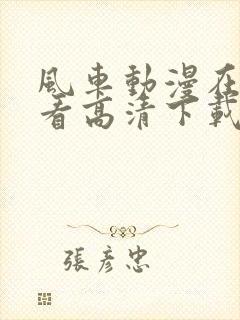 風車動漫在
看高清下載
張彥忠